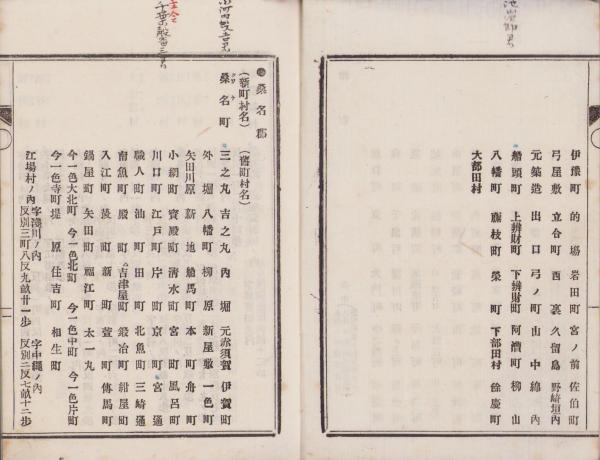 伊豫町 的場 岩田町 宮ノ前 佐伯町
弓屋敷 立合町 西裏 久留島 野崎垣内
元築造 出口 弓ノ町 山中 綿內
船頭町 上辨財町 下辨財町 阿漕町 柳山
八幡町 藤枝町 榮町 下部田村 餘慶町
大部田村
桑名郡
(新町村名) (舊町村名)
桑名町 三之丸 吉之丸 內堀 元赤須賀 伊賀町
クワナ
外堀 八幡町 柳原 新屋敷 一色町
矢田川原 新地 船馬町 本町 舟町
小網町 寶殿町 清水町 宮町 風呂町
川口町 江戶町 片町 京町 宮通
職人町 油町 田町 北魚町 三崎通
南魚町 殿町 吉津屋町 鍛冶町 紺屋町
入江町 新町 萱町 傳馬町
鍋屋町 矢田町 福江町 太一丸
今一色大北町 今一色北町 今一色中町 今一色片町
今一色寺町 堤原 住吉町 相生町
江場村ノ內 字淺川ノ內 反別三町八反九畝廿一步 字中繩ノ內 反別二反七畝十二步